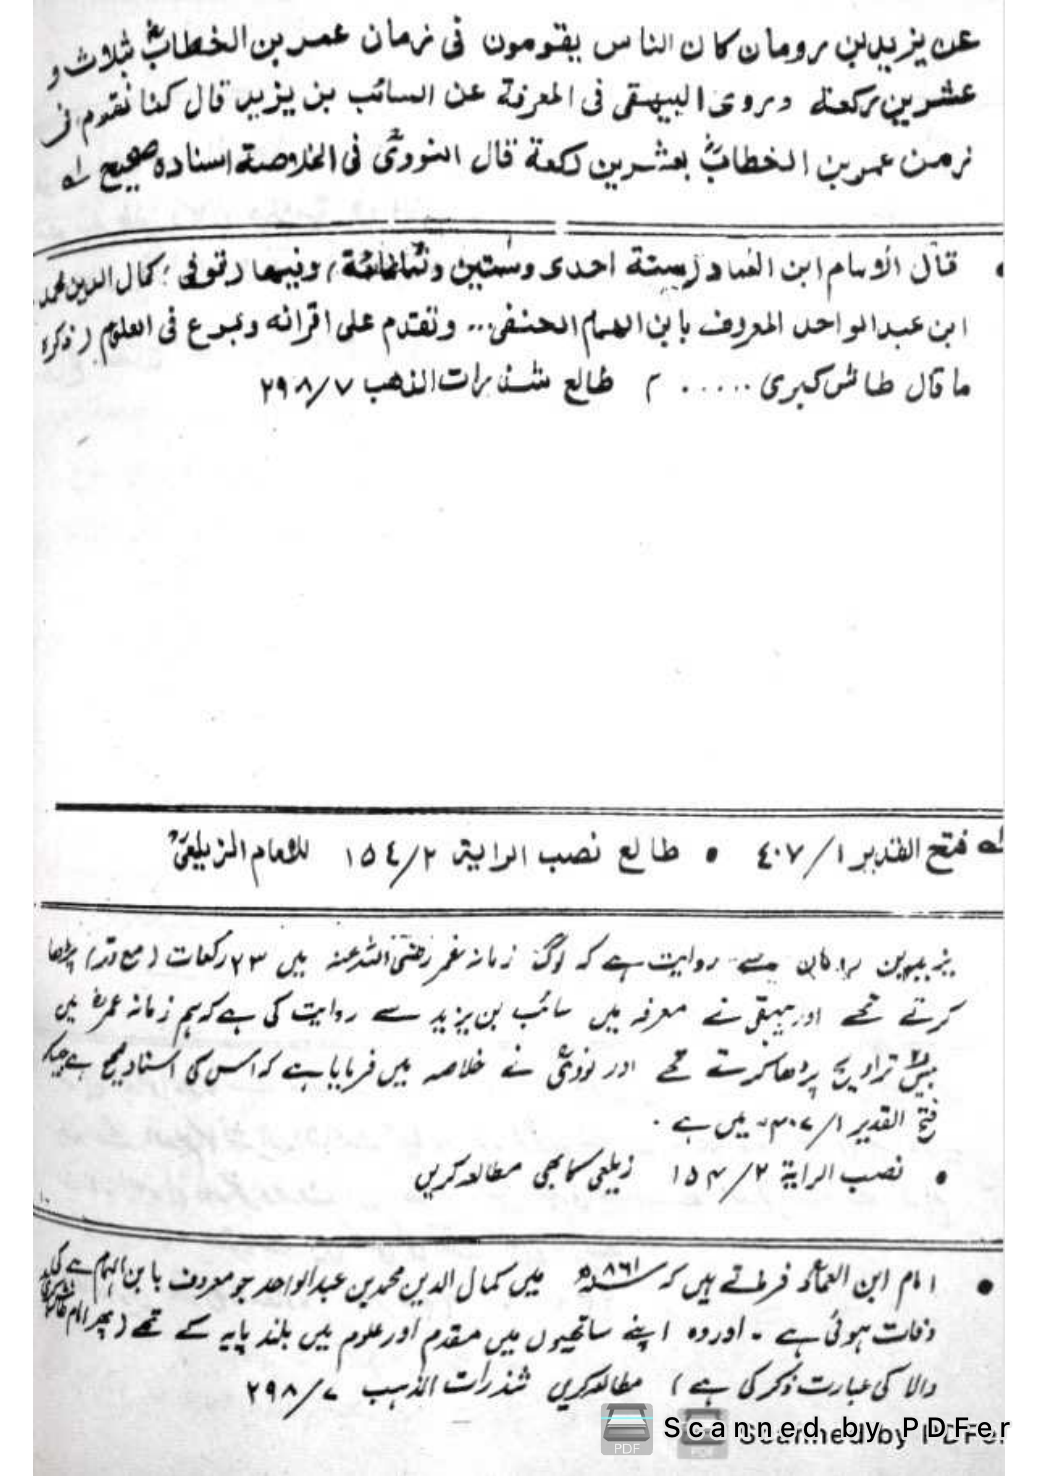 عن يزيد بن رومان كان الناس يقومون فى زمان عمر بن الخطابؓ بثلاث و
عشرين ركعة وروى البيهقى فى المعرفة عن السائب بن يزيد قال كنا نقوم فى
زمن عمر بن الخطابؓ بعشرين ركعة قال النووىؒ فى الخلاصة اسناده صحيح لہ
• قال الامام ابن العماد (سنة احدى وستين وثمانمائة) وفيها توفى : كمال الدين محمد
ابن عبد الواحد المعروف بابن الهمام الحنفى... وتقدم على اقرانه وبرع فى العلوم (ذكره
ما قال طاش كبرى ..... ) طالع شذرات الذهب ٢٩٨/٧
لہ فتح القدير ٤٠٧/١ • طالع نصب الراية ١٥٤/٢ للامام الزيلعىؒ
یزید بن رومان سے روایت ہے کہ لوگ زمانہ عمر رضی اللہ عنہ میں ۲۳ رکعات (مع وتر) پڑھا
کرتے تھے اور بیہقیؒ نے معرفہ میں سائب بن یزید سے روایت کی ہے کہ ہم زمانہ عمرؓ میں
بیسؓ تراویح پڑھا کرتے تھے اور نوویؒ نے خلاصہ میں فرمایا ہے کہ اس کی اسناد صحیح ہے جیسا کہ
فتح القدیر ۴۰۷/۱ میں ہے ۔
• نصب الرایة ۱۵۴/۲ زیلعی کا بھی مطالعہ کریں
• امام ابن العمادؒ فرماتے ہیں کہ ۸۶۱ھ میں کمال الدین محمد بن عبد الواحد جو معروف بابن الہمام ہے کی
وفات ہوئی ہے ۔ اور وہ اپنے ساتھیوں میں مقدم اور علوم میں بلند پایہ کے تھے (پھر امام طاش کبریٰ
والا کی عبارت ذکر کی ہے) مطالعہ کریں شذرات الذہب ۲۹۸/۷
Scanned by PDFer
Scanned by PDFer